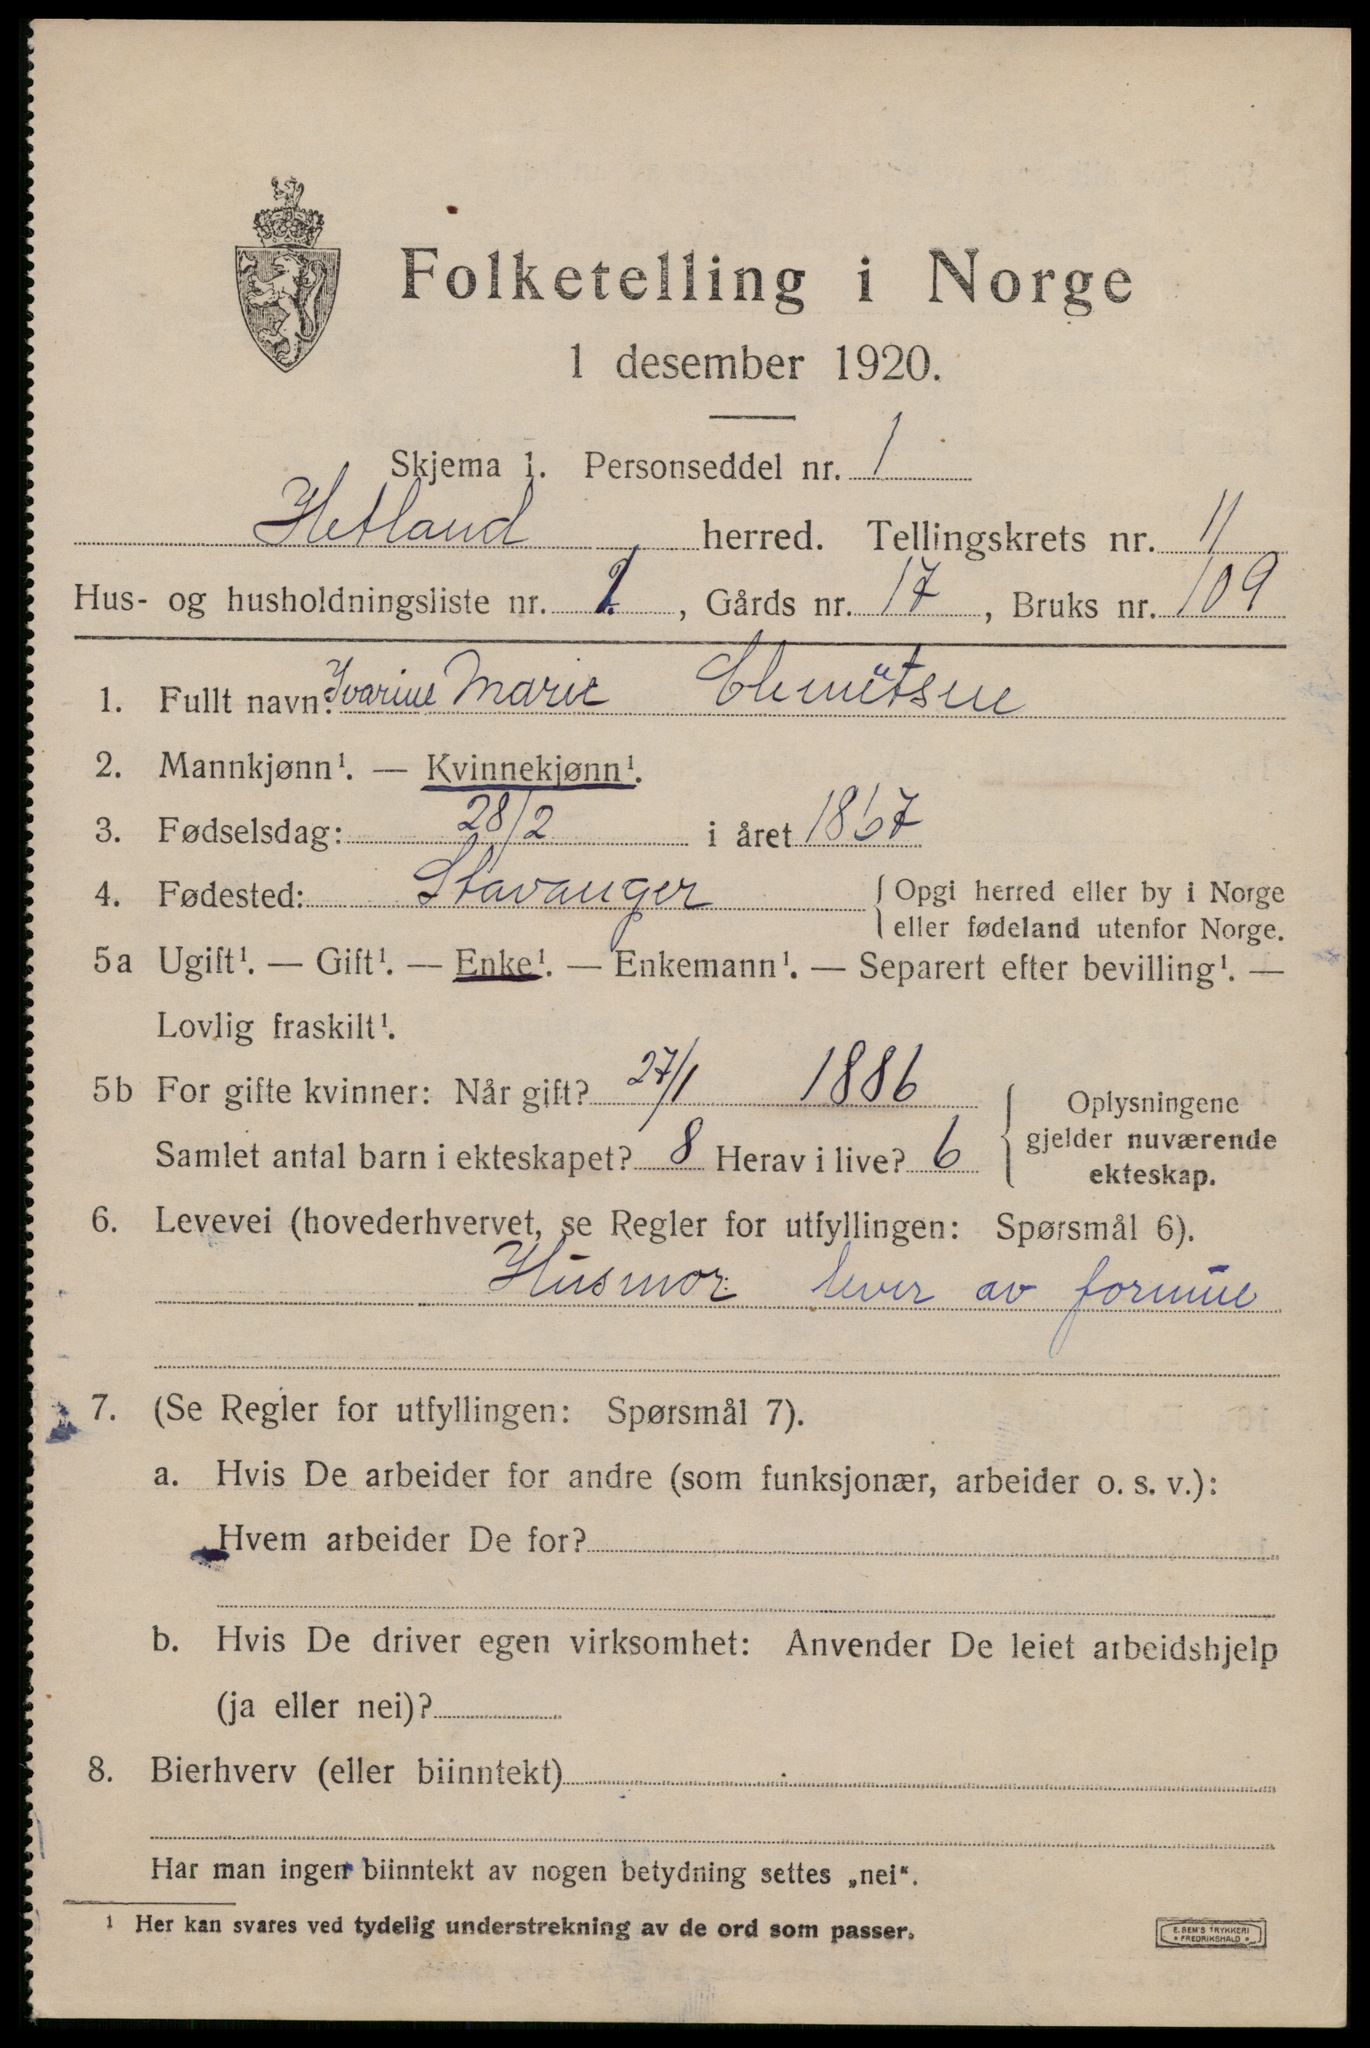 Folketelling i Norge
1 desember 1920.
Skjema 1. Personseddel nr. 1
Hetland herred. Tellingskrets nr. 11
Hus- og husholdningsliste nr. 2, Gårds nr. 17, Bruks nr. 109
1. Fullt navn: Ivarine Marie
2. Mannkjønn¹. — Kvinnekjønn¹.
3. Fødselsdag: 28/2 i året 1867
4. Fødested: Stavanger { Opgi herred eller by i Norge
eller fødeland utenfor Norge.
5a Ugift¹. — Gift¹. — Enke¹. — Enkemann¹. — Separert efter bevilling¹. —
Lovlig fraskilt¹.
5b For gifte kvinner: Når gift? 27/1 1886
Samlet antal barn i ekteskapet? 8 Herav i live? 6
Oplysningene
gjelder nuværende
ekteskap.
6. Levevei (hovederhvervet, se Regler for utfyllingen: Spørsmål 6).
Husmor. lever av formue
7. (Se Regler for utfyllingen: Spørsmål 7).
a. Hvis De arbeider for andre (som funksjonær, arbeider o. s. v.):
Hvem arbeider De for?
b. Hvis De driver egen virksomhet: Anvender De leiet arbeidshjelp
(ja eller nei)?
8. Bierhverv (eller biinntekt)
Har man ingen biinntekt av nogen betydning settes „nei“.
¹ Her kan svares ved tydelig understrekning av de ord som passer.
E. SEM'S TRYKKERI
* FREDRIKSHALD *